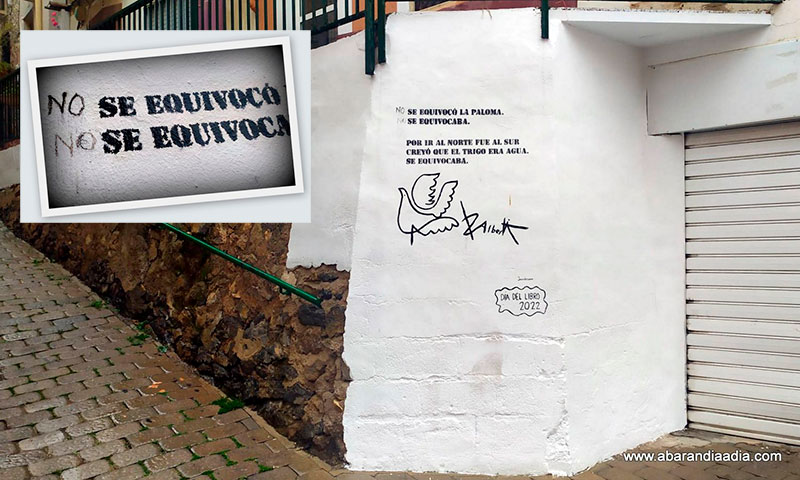 NO SE EQUIVOCÓ
NO SE EQUIVOCA
NO SE EQUIVOCÓ LA PALOMA.
NO SE EQUIVOCABA.
POR IR AL NORTE FUE AL SUR
CREYÓ QUE EL TRIGO ERA AGUA.
SE EQUIVOCABA.
R Alberti
DIA DEL LIBRO
2022
www.abarandiaadia.com